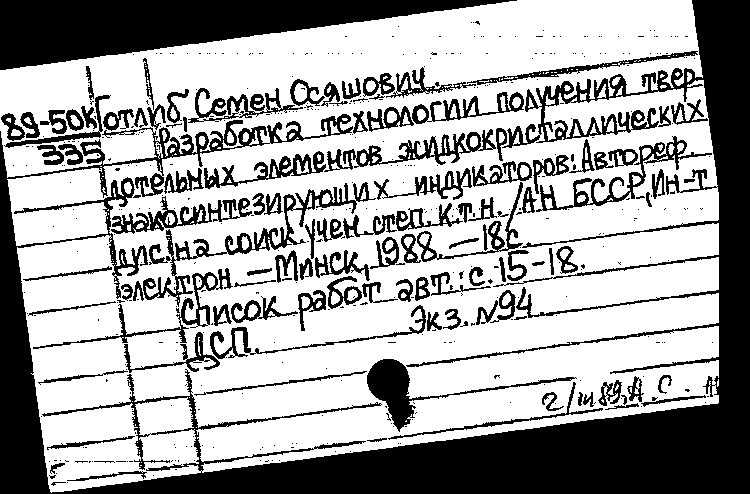 89-50к Готлиб, Семен Осяшович.
335 Разработка технологии получения твер-
дотельных элементов жидкокристаллических
знакосинтезирующих индикаторов: Автореф.
дис. на соиск. учен. степ. к.т.н. / АН БССР, Ин-т
электрон. — Минск, 1988. — 18с.
Список работ авт.: с. 15-18.
ДСП. Экз. №94
2/III 89, А. С.